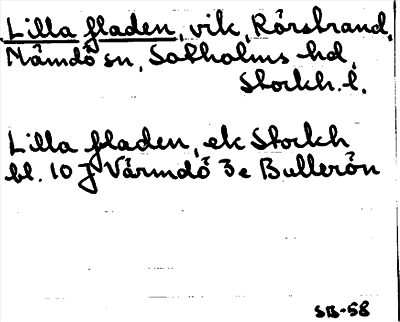 Lilla fladen, vik, Rörsbrand,
Nämdö sn, Sotholms hd,
Stockh. l.
Lilla fladen, ek Stockh
bl. 10 J Värmdö 3 e Bullerön
SB-58